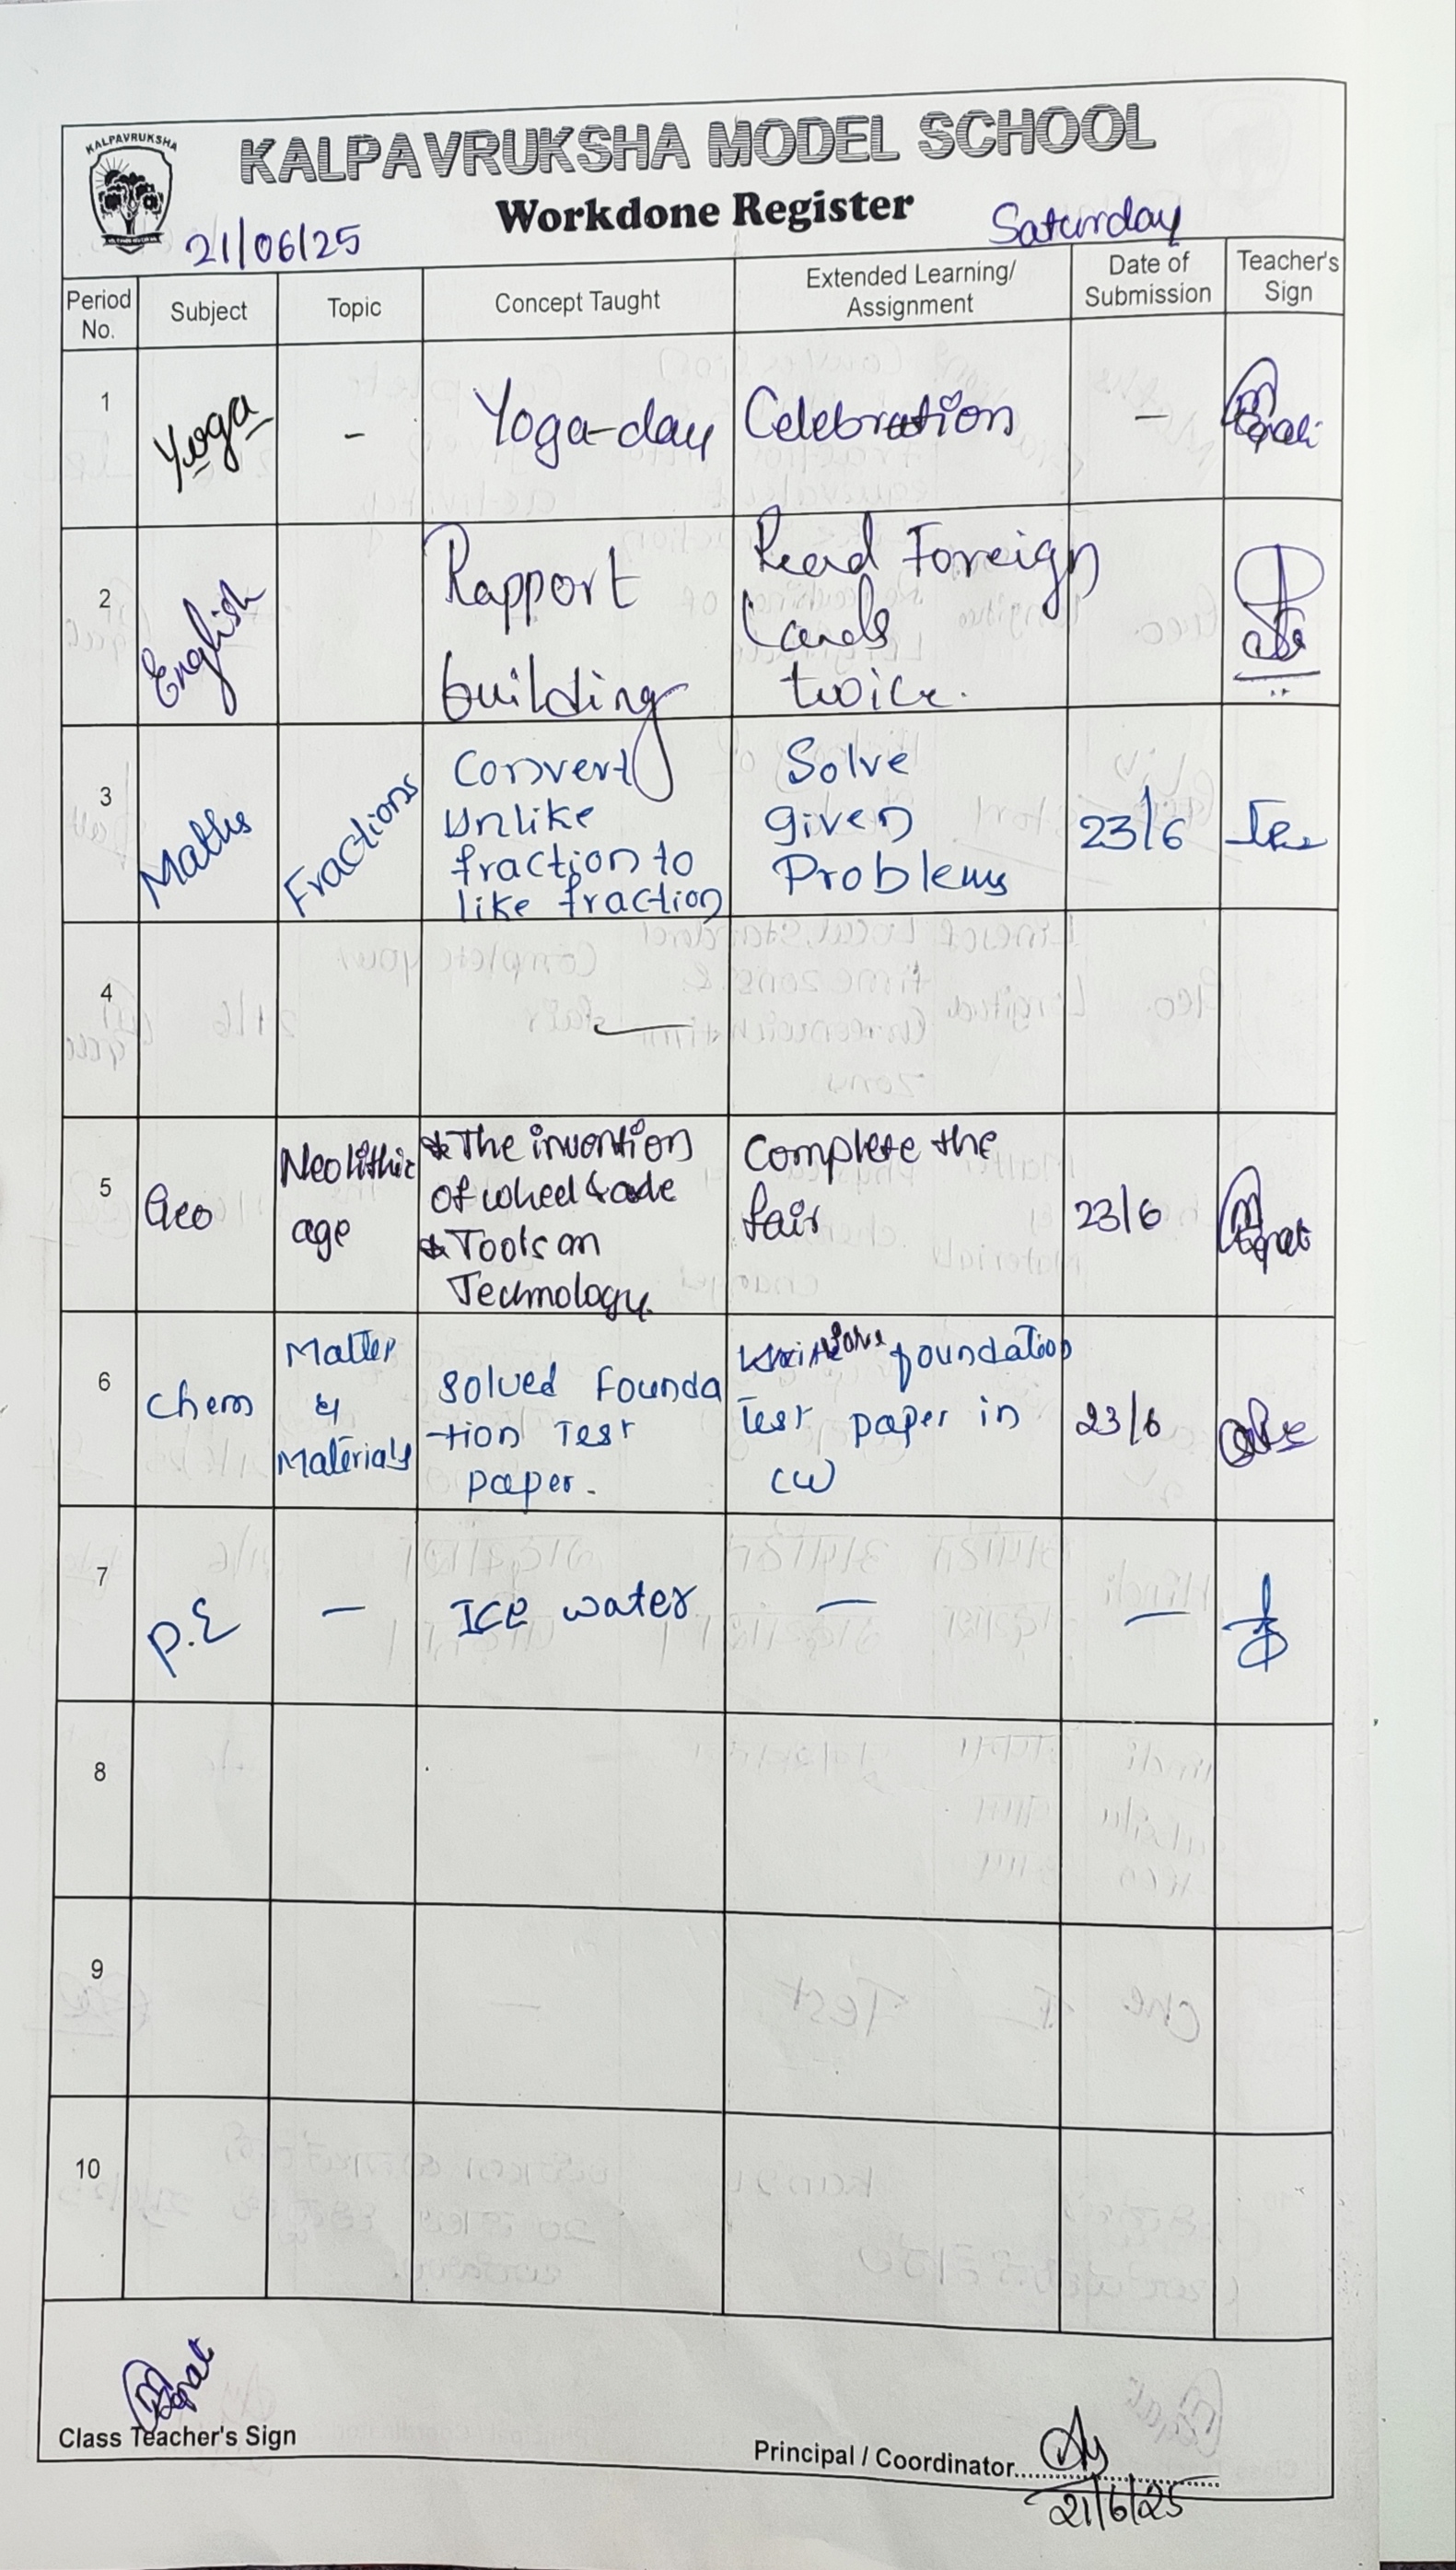 KALPAVRUKSHA
KALPAVRUKSHA MODEL SCHOOL
Workdone Register
21/06/25
Saturday
Period No.
Subject
Topic
Concept Taught
Extended Learning/
Assignment
Date of
Submission
Teacher's
Sign
1
Yoga
-
Yoga-day Celebration
-
2
English
Rapport
building
Read Foreign
Lands
twice.
3
Maths
Fractions
Convert
Unlike
fraction to
like fraction
Solve
given
Problems
23/6
4
5
Geo
Neolithic
age
* The invention
of wheel & ade
* Tools on
Technology.
Complete the
fair
23/6
6
Chem
Matter
&
Materials
Solved Founda
-tion Test
paper.
foundation
Test paper in
CW
23/6
7
P.E
-
ICE water
-
-
8
9
10
Class Teacher's Sign
Principal / Coordinator
21/6/25